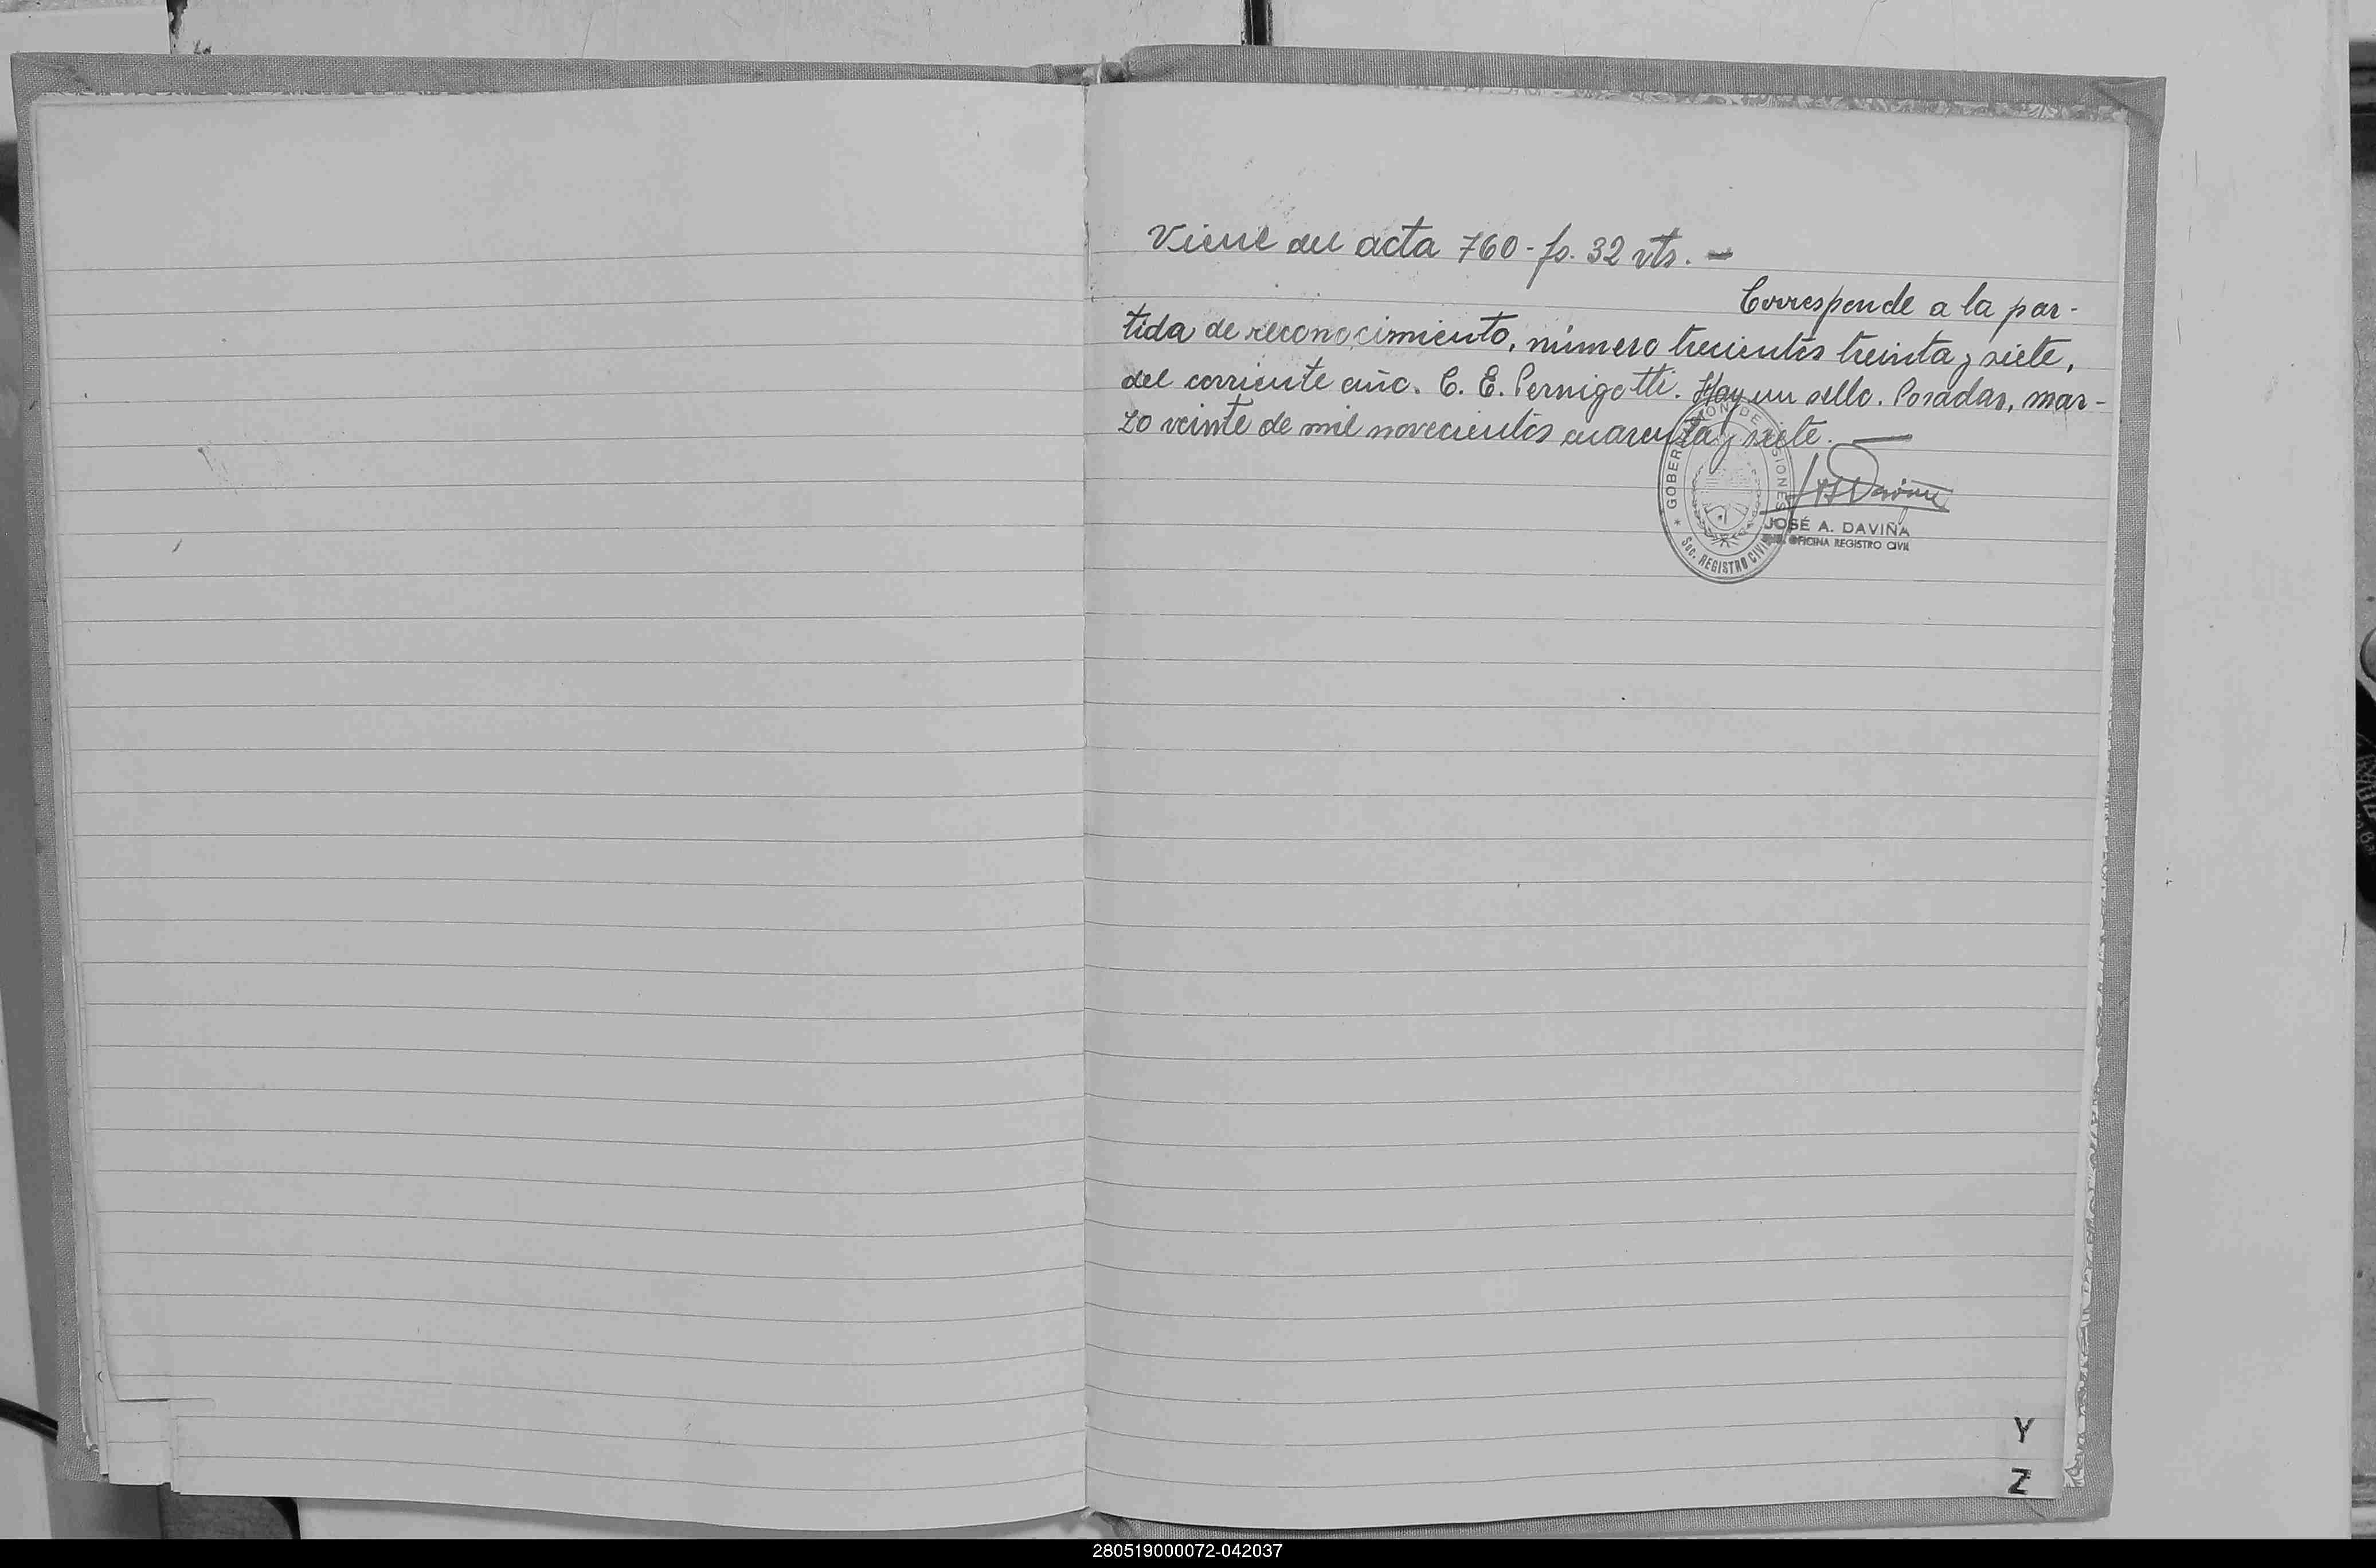 Viene del acta 760 - fs. 32 vta. -
Corresponde a la par-
tida de reconocimiento, número trecientos treinta y siete,
del corriente año. C. E. Pernigotti. Hay un sello. Posadas, mar-
zo veinte de mil novecientos cuarenta y siete. —
GOBERNACION DE MISIONES
Sec. REGISTRO CIVIL
JOSÉ A. DAVIÑA
OFICINA REGISTRO CIVIL
Y
Z
280519000072-042037